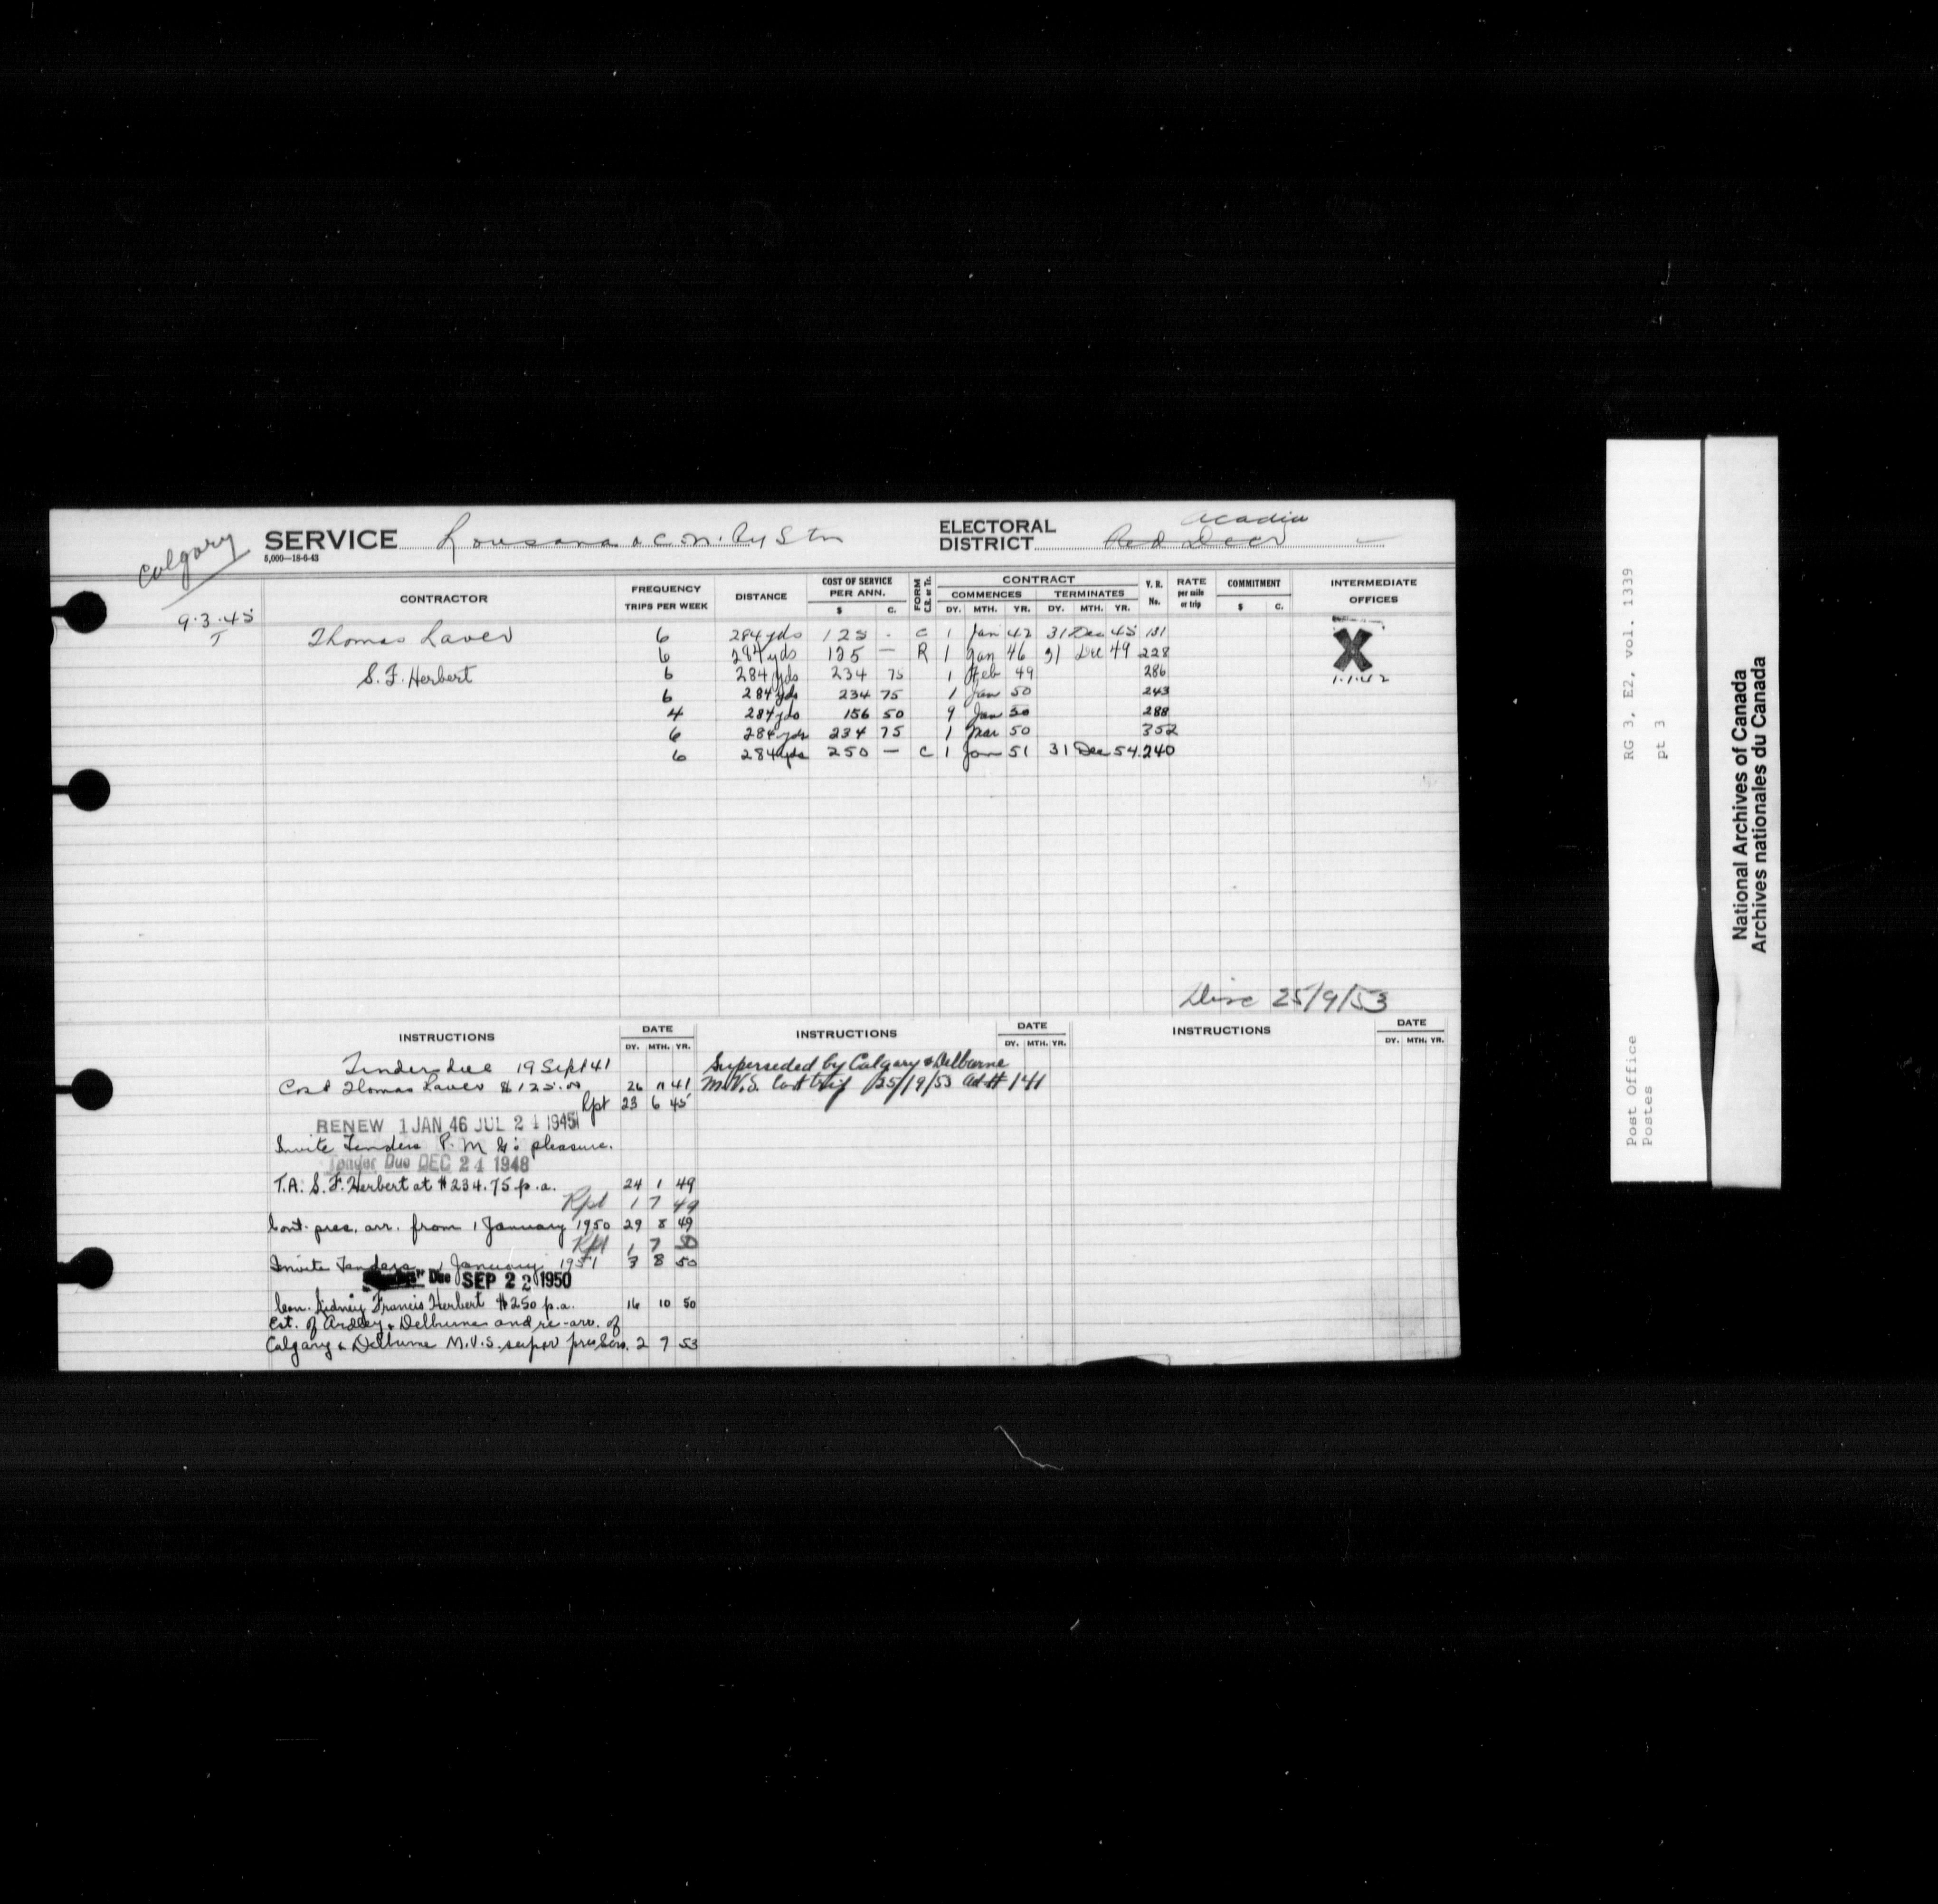 Calgary
SERVICE Lousana & C.N. Ry Stn
5,000—18-6-43
ELECTORAL DISTRICT Acadia
Red Deer
9.3.45
T
CONTRACTOR FREQUENCY TRIPS PER WEEK DISTANCE COST OF SERVICE PER ANN. $ C. FORM C.R. or Tr. CONTRACT COMMENCES DY. MTH. YR. TERMINATES DY. MTH. YR. Y. R. No. RATE per mile or trip COMMITMENT $ C. INTERMEDIATE OFFICES
Thomas Laver 6 284 yds 125 - C 1 Jan 42 31 Dec 45 131
6 284 yds 125 — R 1 Jan 46 31 Dec 49 228
X
1.1.42
S. F. Herbert 6 284 yds 234 75 1 Feb 49 286
6 284 yds 234 75 1 Jan 50 243
4 284 yds 156 50 9 Jan 50 288
6 284 yds 234 75 1 Mar 50 352
6 284 yds 250 — C 1 Jan 51 31 Dec 54 240
Disc 25/9/53
INSTRUCTIONS DATE DY. MTH. YR. INSTRUCTIONS DATE DY. MTH. YR. INSTRUCTIONS DATE DY. MTH. YR.
Tenders due 19 Sept 41
Cost Thomas Laver $125.00 26 11 41
Rpt 23 6 45
RENEW 1 JAN 46 JUL 21 1945
Invite Tenders P. M G's pleasure.
Tender Due DEC 24 1948
T.A. S. F. Herbert at $234.75 p.a. 24 1 49
Rpt 1 7 49
Cont. pres. arr. from 1 January 1950 29 8 49
Rpt 1 7 50
Invite Tenders 1 January 1951 3 8 50
Due SEP 22 1950
Con. Sidney Francis Herbert $250 p.a. 16 10 50
Est. of Ardley & Delburne and re-arr. of
Calgary & Delburne M.V.S. super pres Serv. 2 7 53
Superseded by Calgary & Delburne
M.V.S. 25/9/53 141
RG 3, E2, vol. 1339
pt 3
Post Office
Postes
National Archives of Canada
Archives nationales du Canada